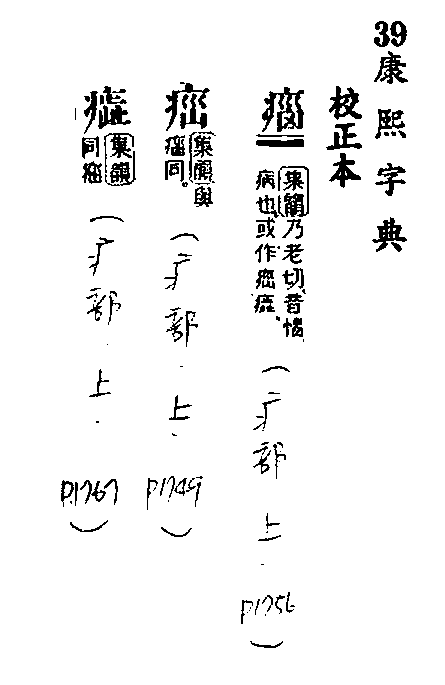 39康熙字典
校正本
集韻乃老切音惱
病也。或作
(疒部.上.P1756)
集韻與
同。
(疒部.上.P1749)
集韻
同
(疒部.上.P1767)